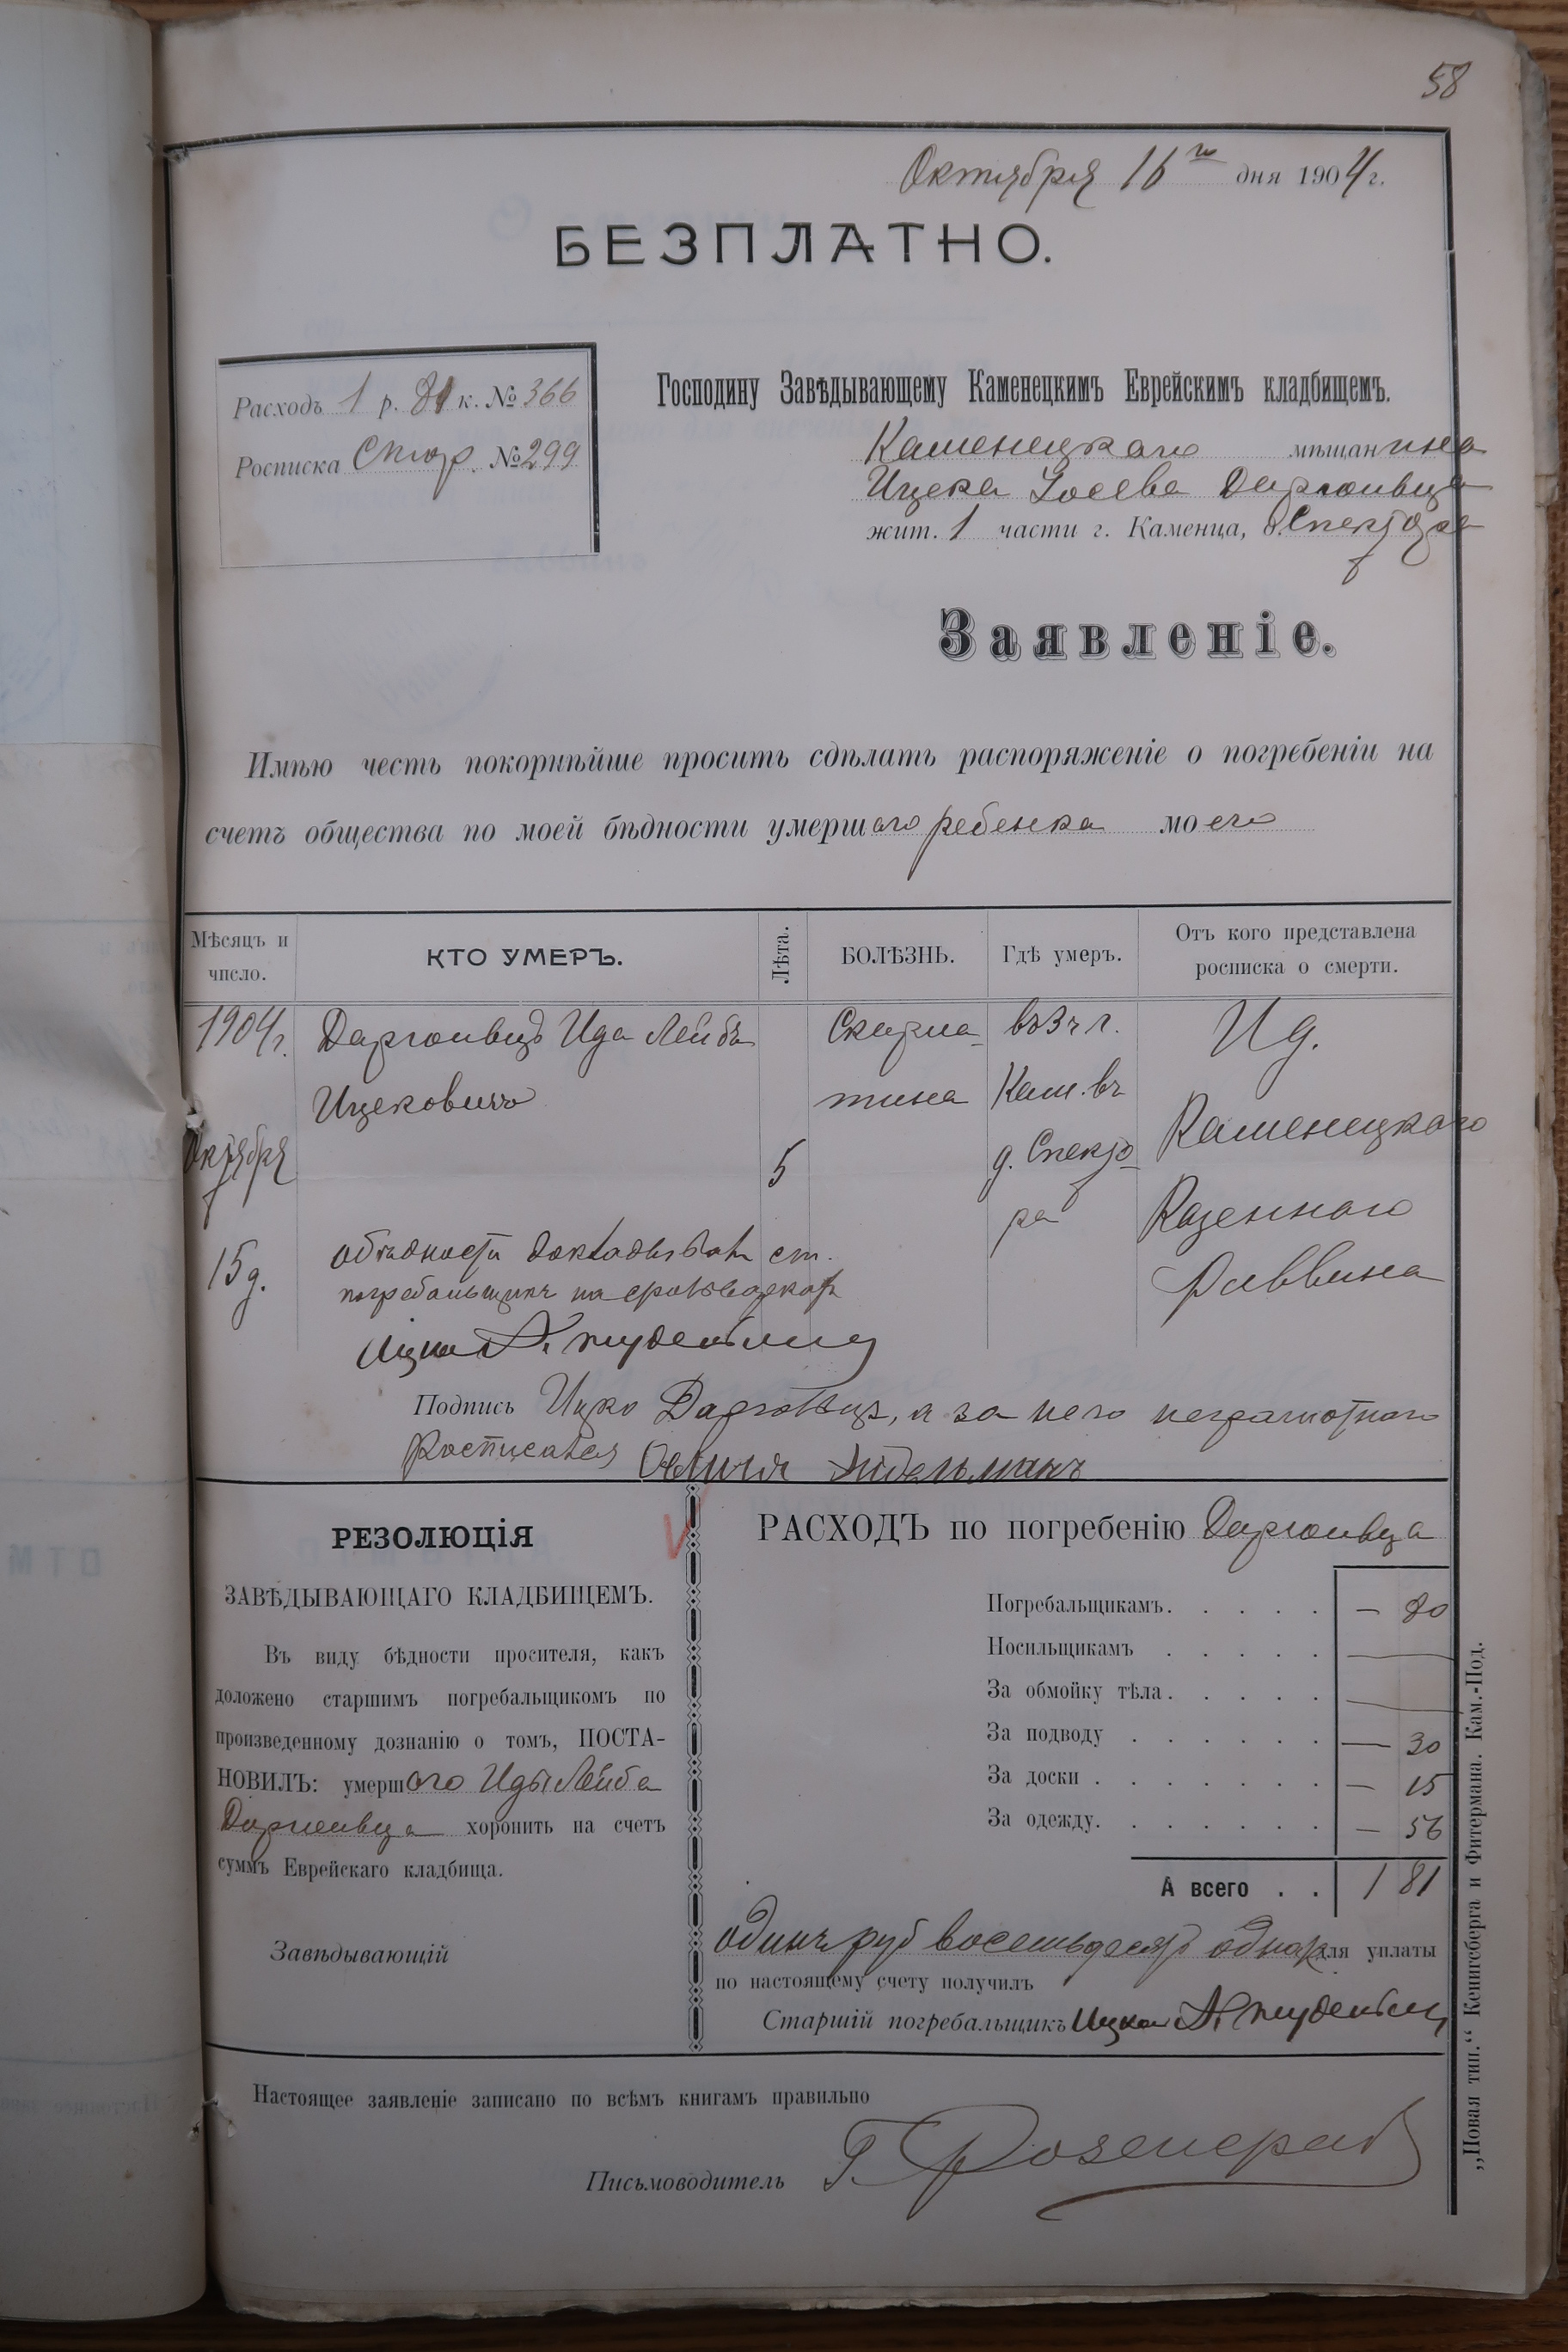 58
Октября 16го дня 1904 г.
БЕЗПЛАТНО.
Расходъ 1 р. 81 к. № 366
Росписка № 299
Господину Завѣдывающему Каменецкимъ Еврейскимъ кладбищемъ.
Каменецкаго мѣщанина
Ицека
жит. 1 части г. Каменца, д. Спектора
Заявленіе.
Имѣю честь покорнѣйше просить сдѣлать распоряженіе о погребеніи на
счетъ общества по моей бѣдности умершаго ребенка моего
Мѣсяцъ и число.
КТО УМЕРЪ.
Лѣта.
БОЛѢЗНЬ.
Гдѣ умеръ.
Отъ кого представлена росписка о смерти.
1904 г. Ида Лейбъ Скарла- въ 3 ч г. Ид.
Ицековичъ тина Кам. въ Каменецкаго
Октября 5 д. Спекто-
ра Казеннаго
15 д. Раввина
ст.
погребальщикъ на
Ицко
Подпись Ицко а за него неграмотнаго
Росписался
РЕЗОЛЮЦІЯ
ЗАВѢДЫВАЮЩАГО КЛАДБИЩЕМЪ.
Въ виду бѣдности просителя, какъ
доложено старшимъ погребальщикомъ по
произведенному дознанію о томъ, ПОСТА-
НОВИЛЪ: умершаго Иды Лейба
хоронить на счетъ
суммъ Еврейскаго кладбища.
Завѣдывающій
РАСХОДЪ по погребенію
Погребальщикамъ. — 80
Носильщикамъ —
За обмойку тѣла. —
За подводу — 30
За доски — 15
За одежду. — 56
А всего 1 81
одинъ руб восемьдесятъ одна к для уплаты
по настоящему счету получилъ
Старшій погребальщикъ Ицко
Настоящее заявленіе записано по всѣмъ книгамъ правильно
Письмоводитель Г.
„Новая тип.“ Кенигсберга и Фитермана. Кам.-Под.